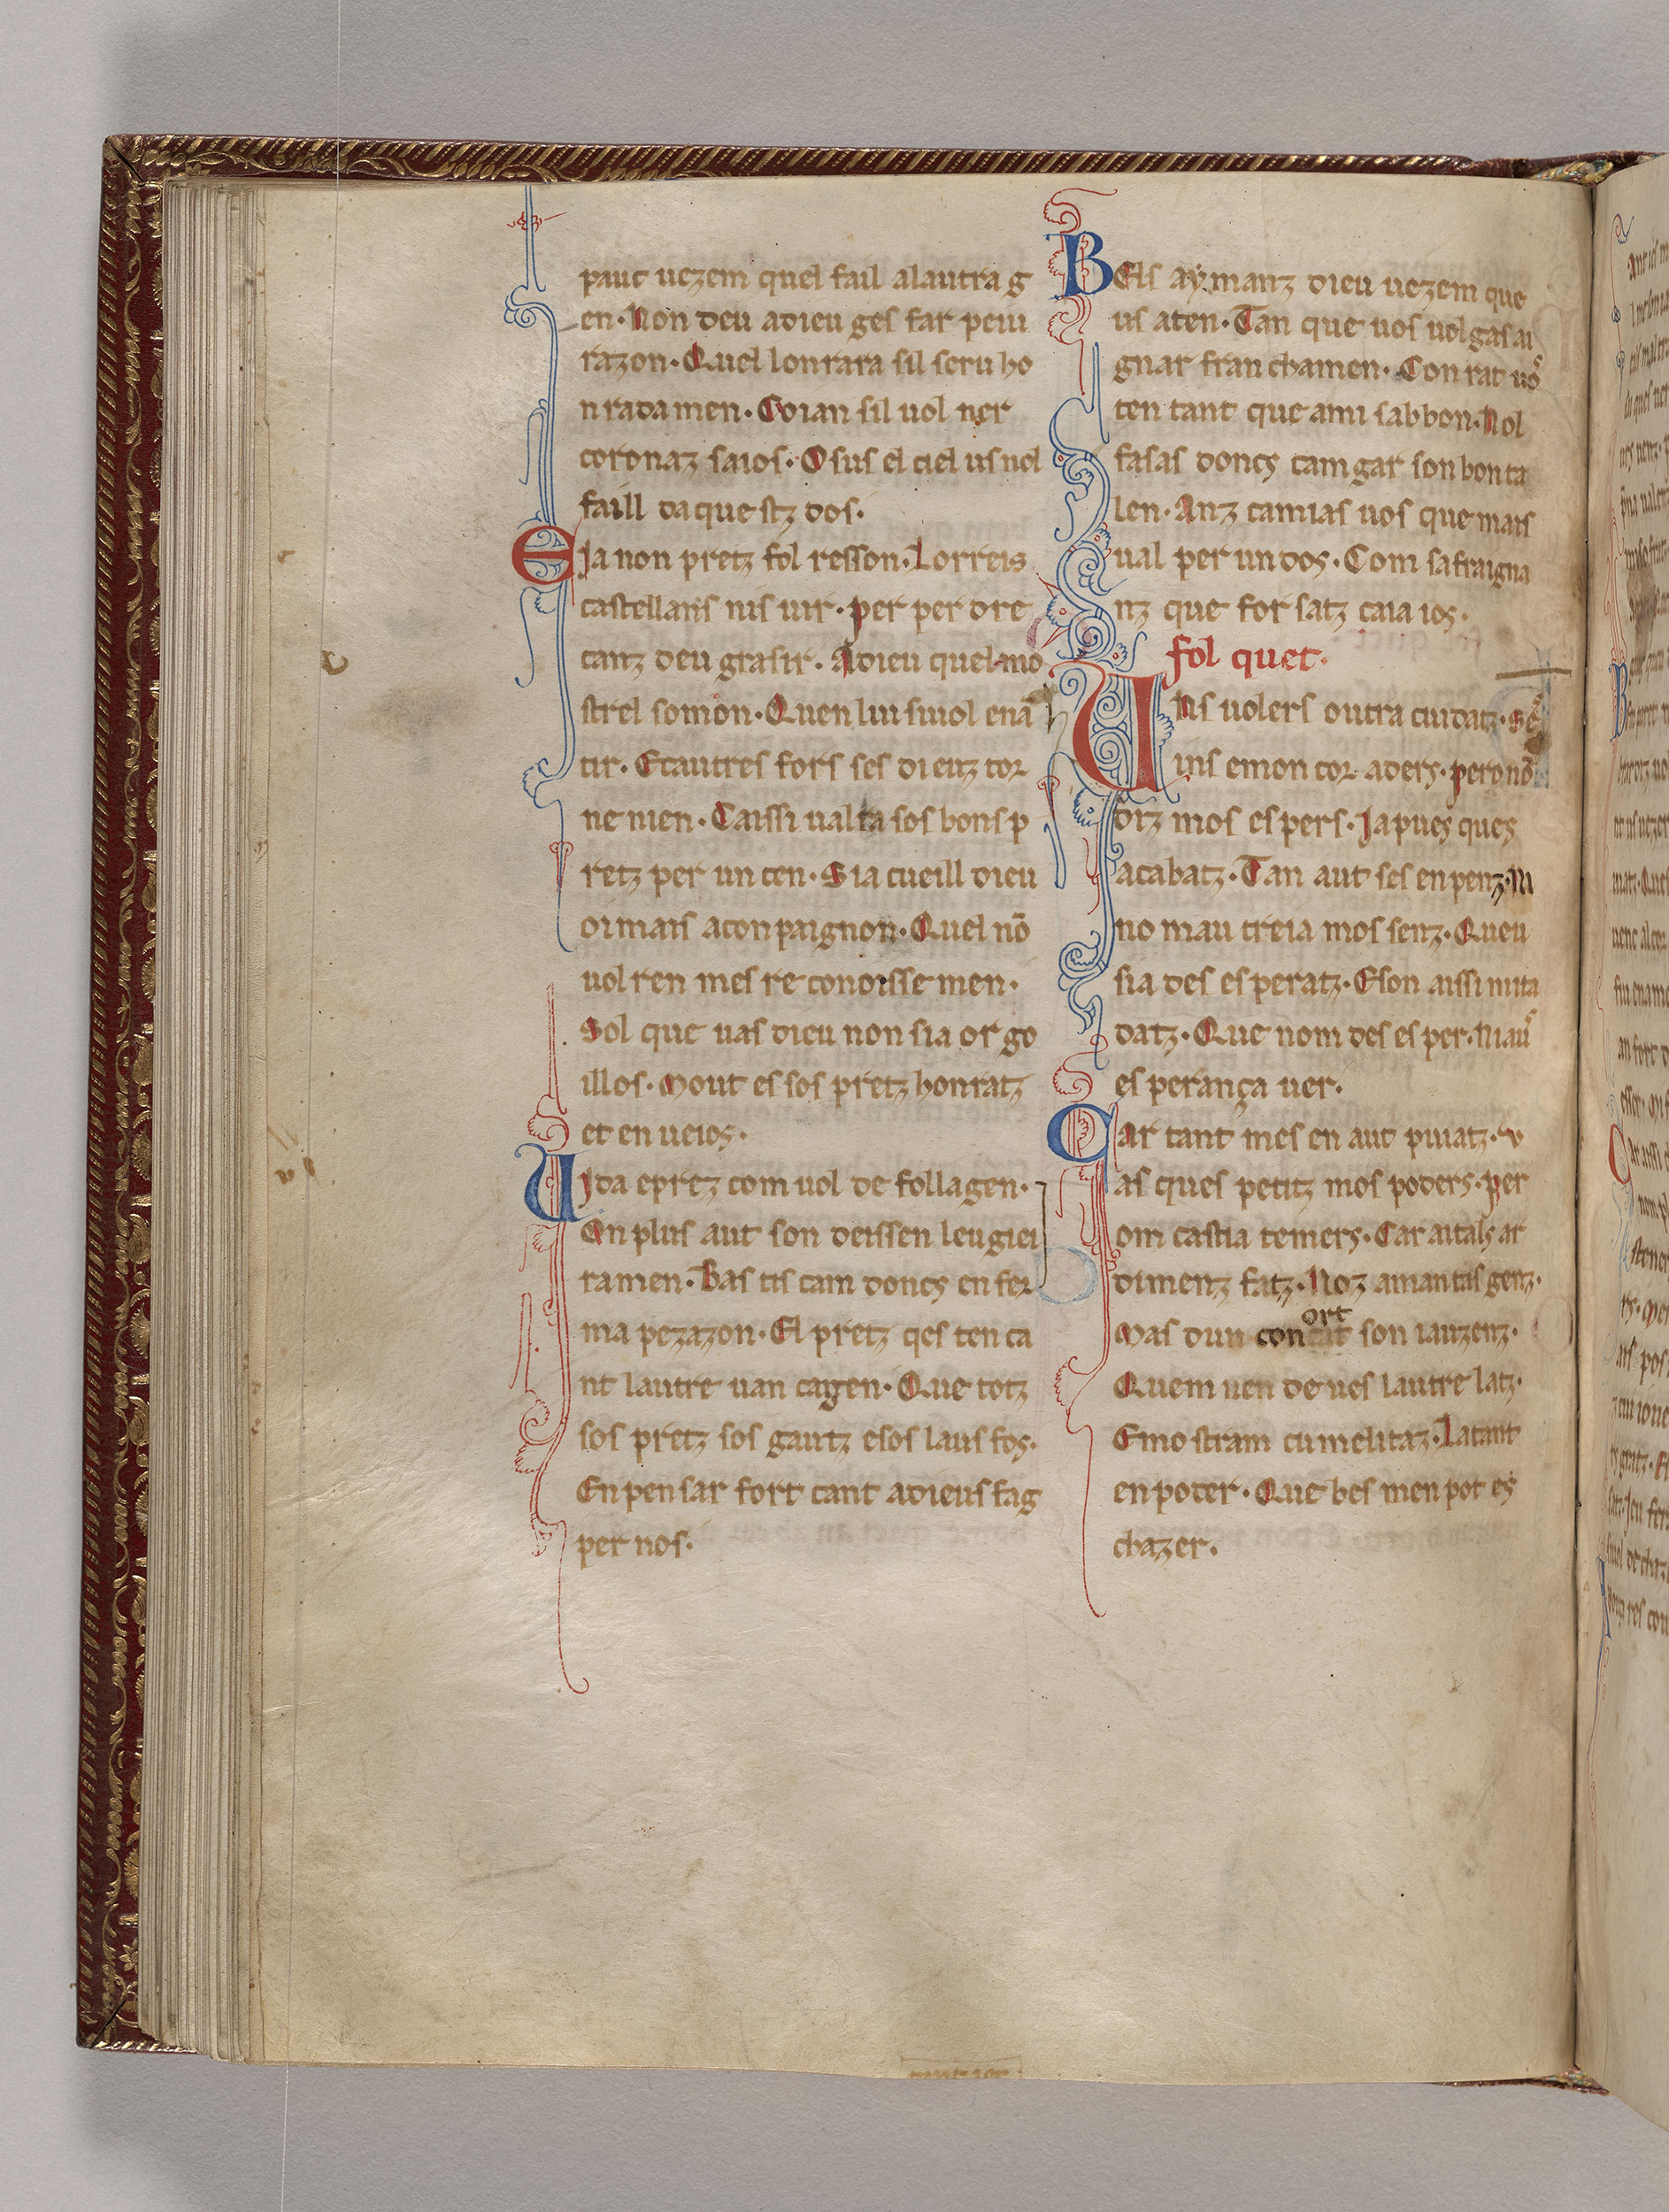 pauc uezem quel fail alautra g
en· Non deu adieu ges far peiu
razon· Quel lonrara sil seru ho
nradamen· Coian sil uol ner
coronaz saios· O sus el ciel us nel
faill daquestz dos·
E Ja non pretz fol resson· Lorreis
castellans nis uir· per per dre
canz deu grasir· Adieu quel mo
strel somon· Quen lui si uol enã
tir· Et autres fors ses dieuz tor
ne nien· Caissi ual ta sos bons p
retz per un cen· Sia cueill dieu
oimais aconpaignon· Quel nõ
uol ren mes reconoissemen·
Sol que uas dieu non sia orgo
illos· Mout es sos pretz honratz
et enueios·
Vida epretz com uol de follagen·
On plus aut son deissen leugiei
ramen· Bastis cam doncs en fer
ma pezazon· El pretz qes ten ca
nt lautre uan cagen· Que totz
sos pretz sos gautz esos laus fos·
En pensar fort cant adieus fag
per nos·
BEls aÿmanz dieu uezem que
us aten· Tan que uos uol gasai
gnar franchamen· Conrat uos
ten tant que ami sab bon· Nol
fasas doncs camgar son bon ta
len· Anz camias uos que mais
ual per un dos· Com safraigna
nz que forsatz caia ios·
fol quet·
VNs uolers outra cuidatz· Ses
uins emon cor aders· pero nõ
diz mos espers· Ja pues ques
acabatz· Tan aut ses enpenz· Ni
no mautreia mos senz· Queu
sia des esperatz· E son aissi mita
datz· Que nom des esper· Ni aus
esperança uer·
Car tant mes en aut puiatz· V
as ques petitz mos poders· per
om castia temers· Car aitals ar
dimenz fatz· Noz amantas genz·
Mas dun conort son iauzenz·
Quem uen de ues lautre latz·
Emostram cumelitaz· La tant
en poder· Que bes men pot es
chazer·